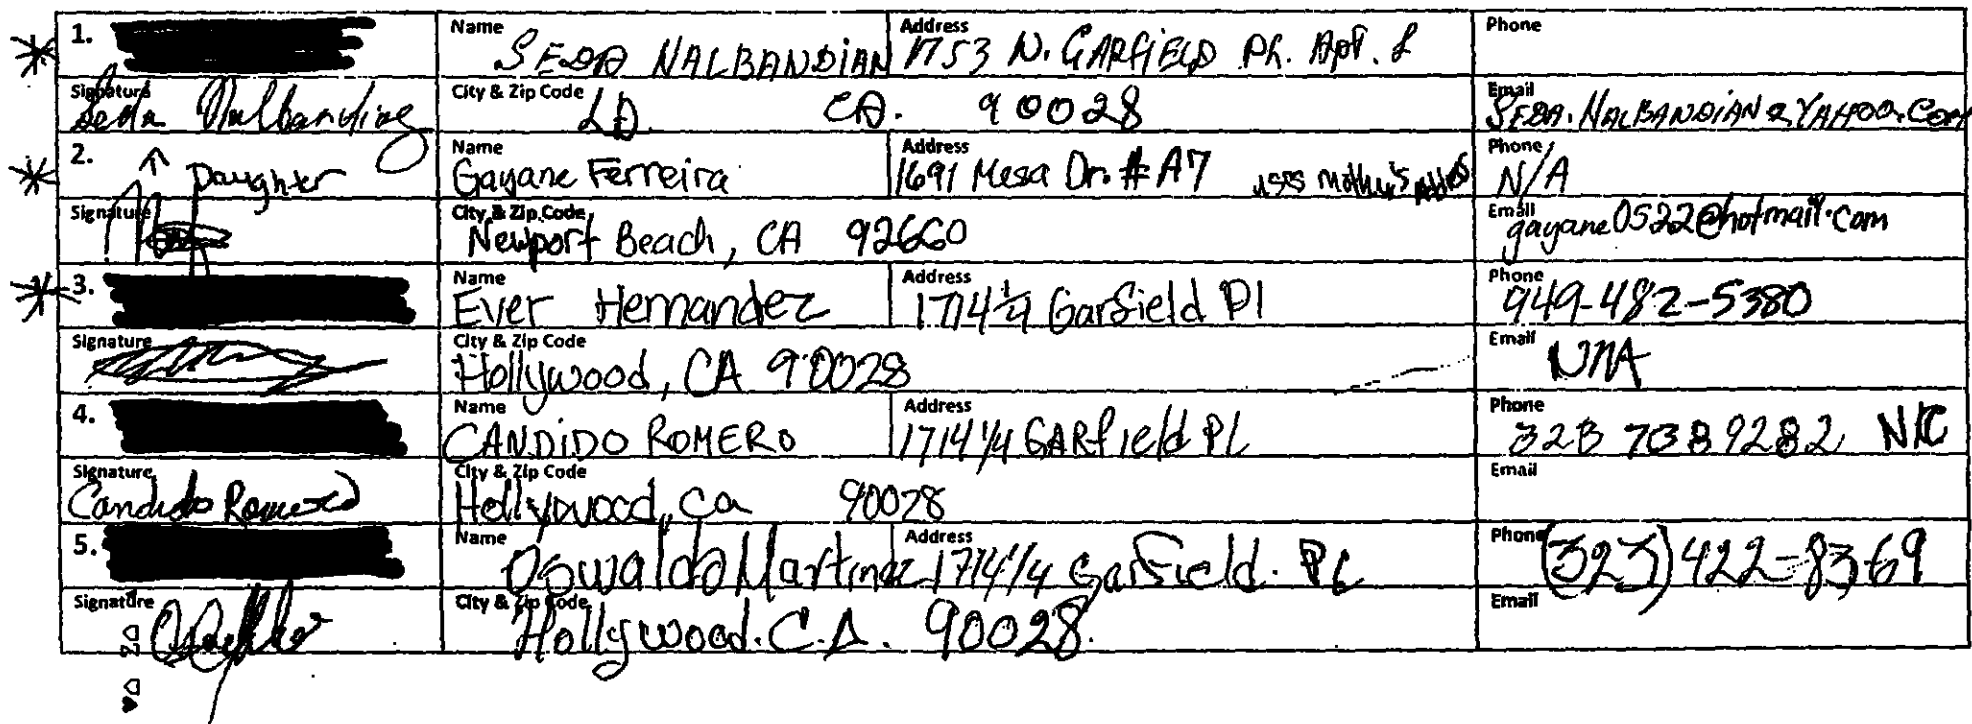 1. Name SEDA NALBANDIAN Address 1753 N. GARFIELD PL. Apt. L Phone
Signature Seda Nalbandian City & Zip Code CA. 90028 Email SEDA.NALBANDIAN@YAHOO.COM
2. ↑ Daughter Name Gayane Ferreira Address 1691 Mesa Dr. #A7 uses mother's Phone N/A
Signature City & Zip Code Newport Beach, CA 92660 Email gayane0522@hotmail.com
3. Name Ever Hernandez Address 1714 1/4 Garfield Pl Phone 949-482-5380
Signature City & Zip Code Hollywood, CA 90028 Email N/A
4. Name CANDIDO ROMERO Address 1714 1/4 GARfield PL Phone 323 7389282 N/C
Signature Candido Romero City & Zip Code Hollywood, ca 90028 Email
5. Name Oswaldo Martinez Address 1714 1/4 Garfield. PL Phone (323) 422-8369
Signature City & Zip Code Hollywood. C.A. 90028. Email